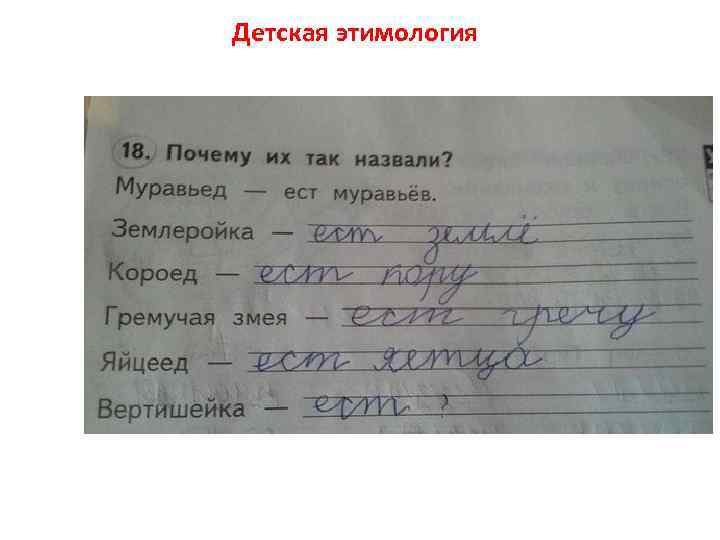 Детская этимология
18. Почему их так назвали?
Муравьед — ест муравьёв.
Землеройка — ест землё
Короед — ест пору
Гремучая змея — ест гречу
Яйцеед — ест яетца
Вертишейка — ест ?